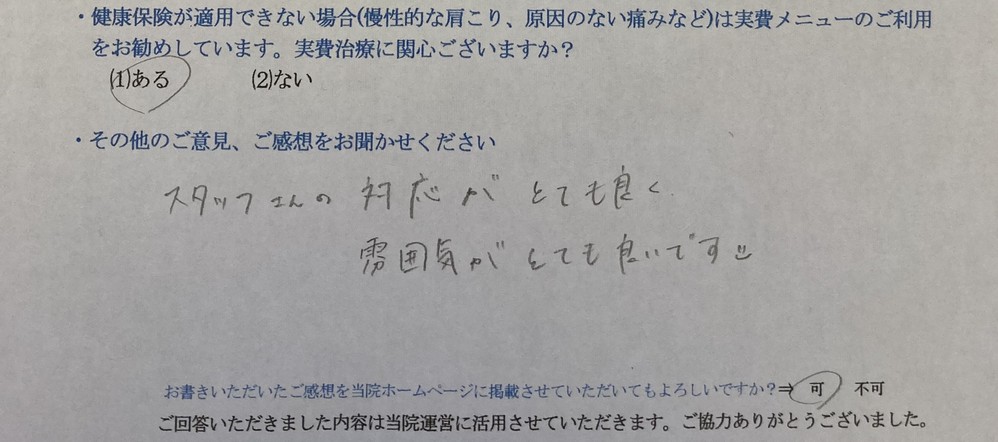 ・健康保険が適用できない場合(慢性的な肩こり、原因のない痛みなど)は実費メニューのご利用
をお勧めしています。実費治療に関心ございますか？
(1)ある　(2)ない
・その他のご意見、ご感想をお聞かせください
スタッフさんの対応がとても良く
雰囲気がとても良いです
お書きいただいたご感想を当院ホームページに掲載させていただいてもよろしいですか？⇒ 可　不可
ご回答いただきました内容は当院運営に活用させていただきます。ご協力ありがとうございました。